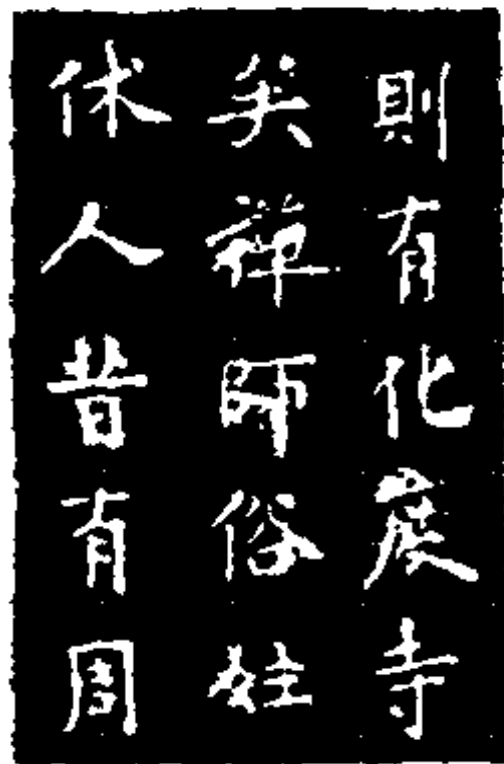 則有化度寺
矣禪師俗姓
休人昔有周